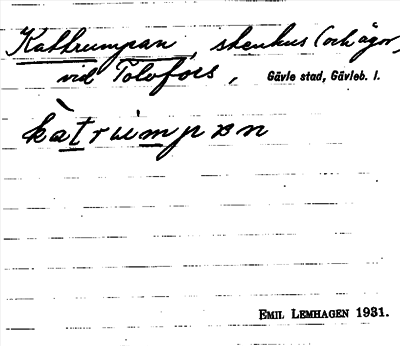 Kattrumpan, stenhus (och ägor)
vid Tolvfors, Gävle stad, Gävleb. l.
kàtrumpan
EMIL LEMHAGEN 1931.